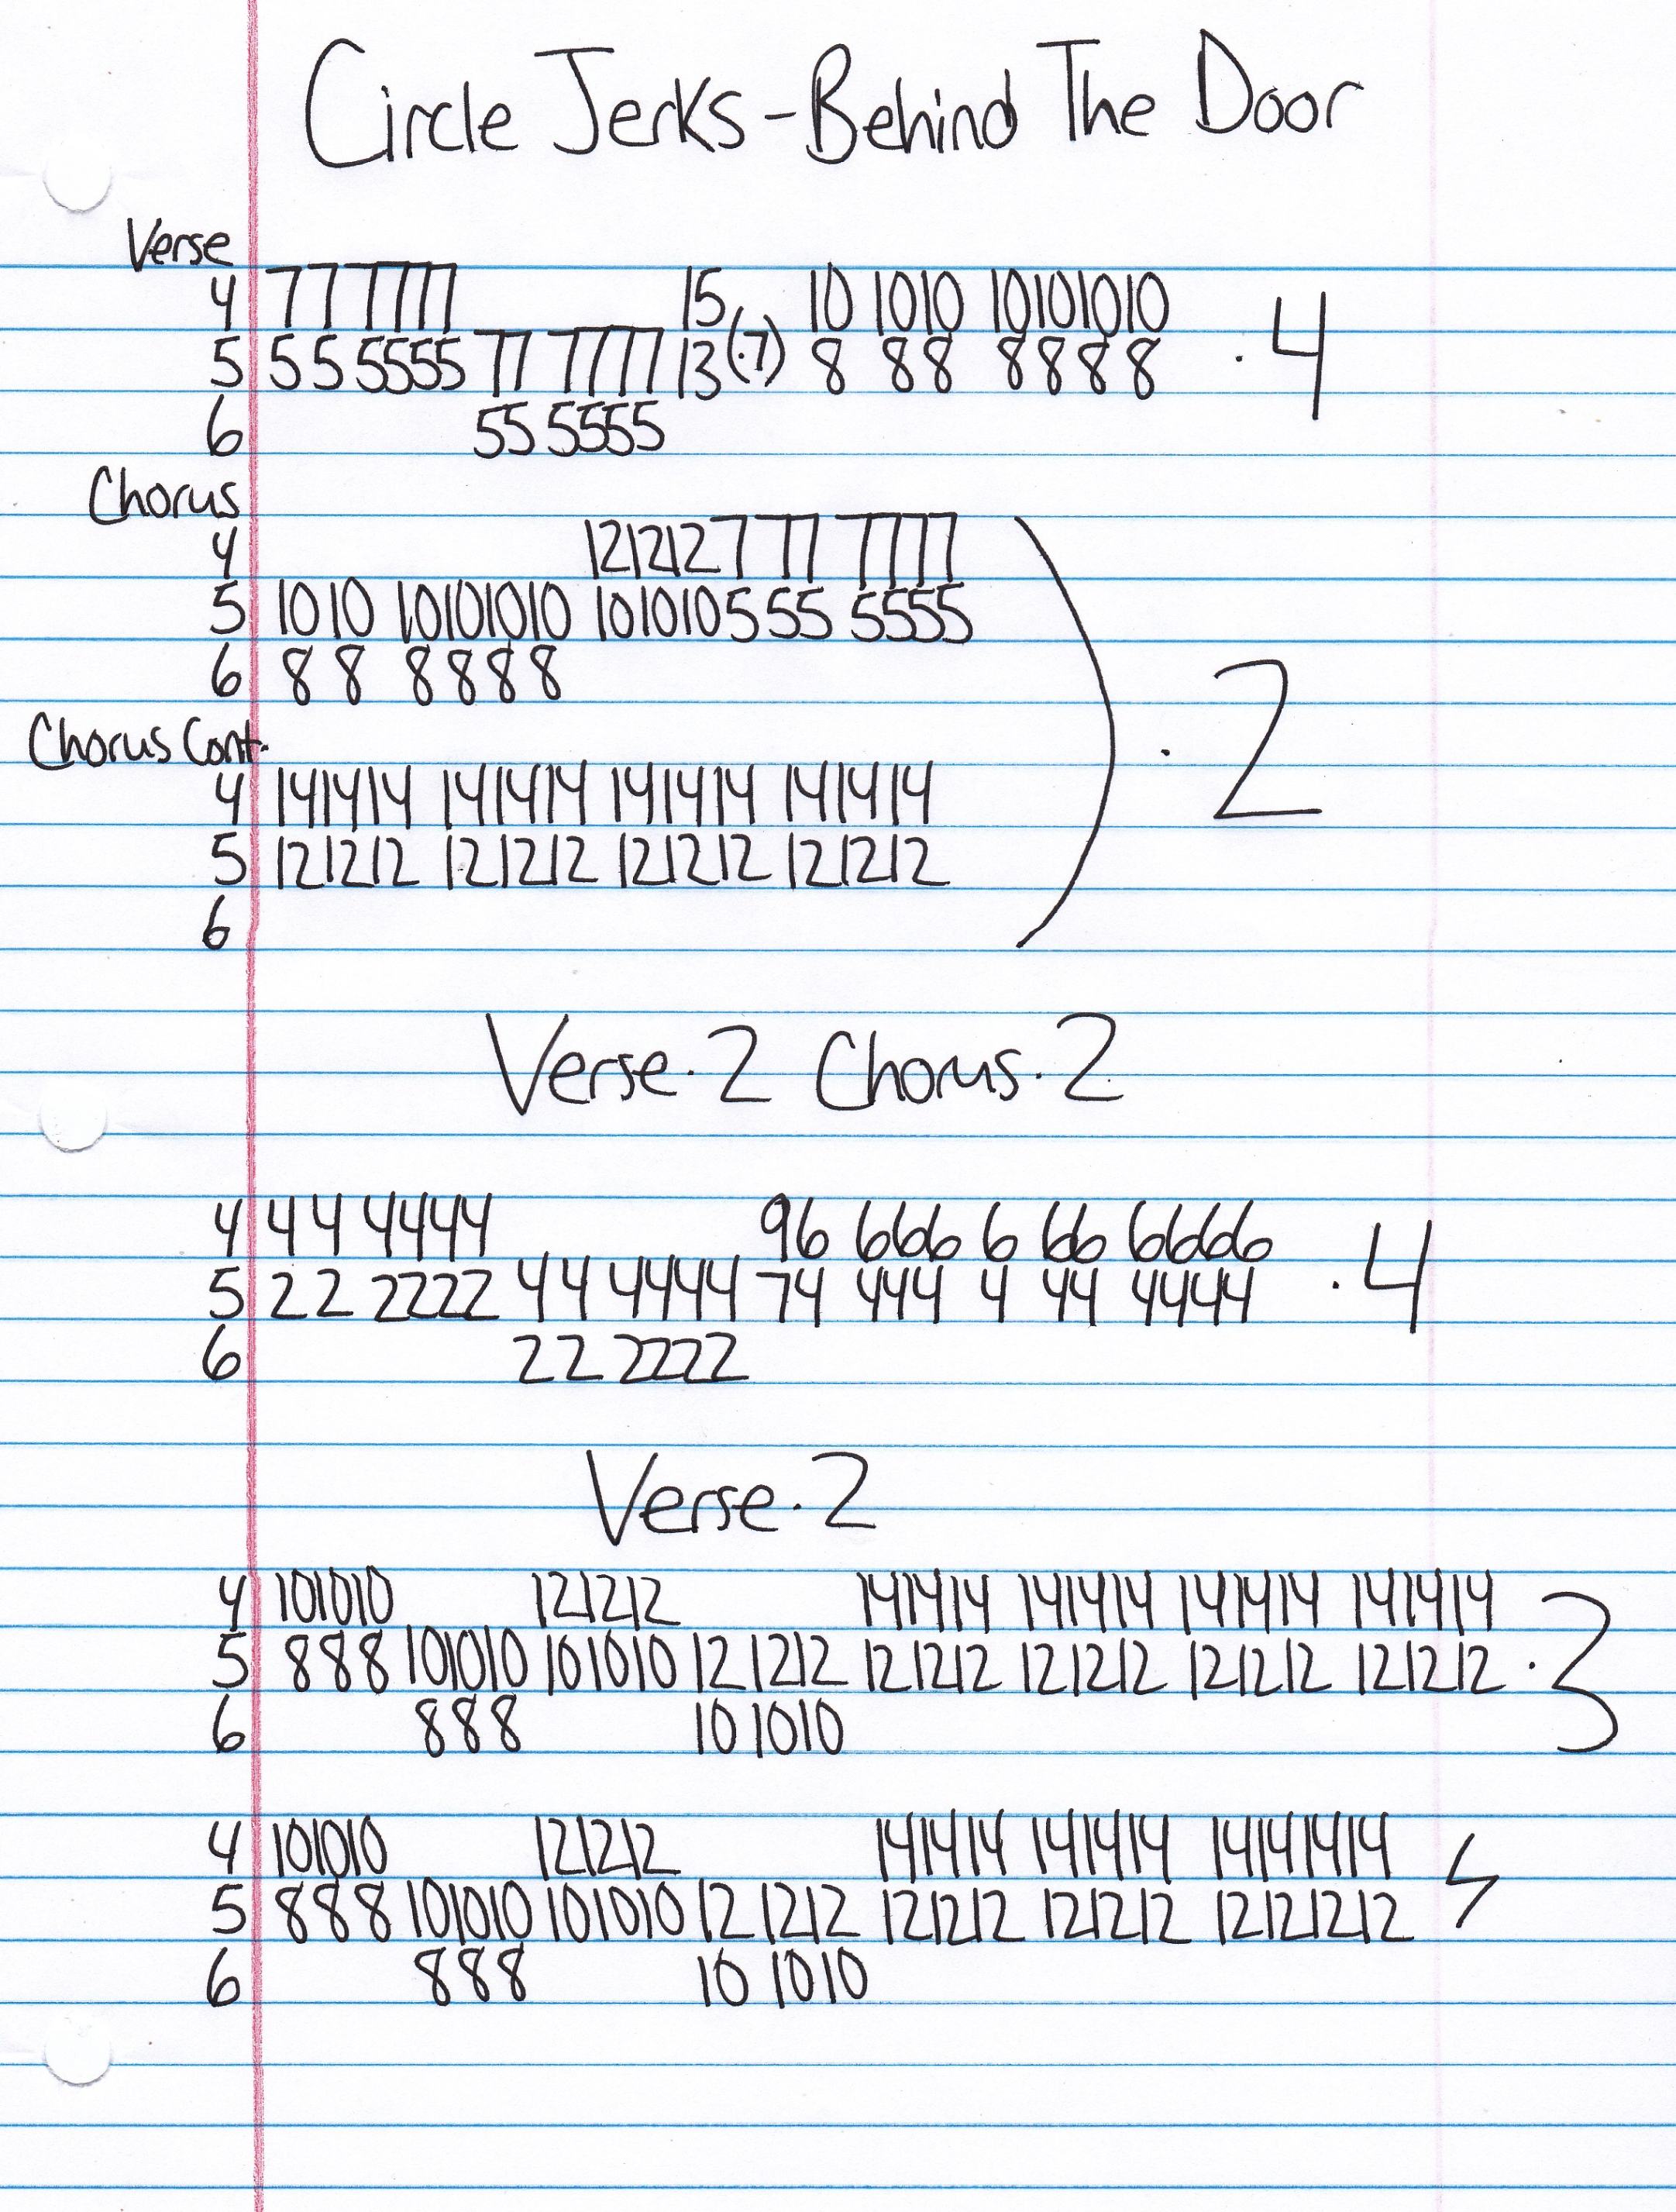 Circle Jerks - Behind The Door
Verse
4 77 7777 15 10 1010 10101010
5 55 5555 77 7777 13(·7) 8 88 8888 · 4
6 55 5555
Chorus
4 121212777 7777
5 1010 10101010 101010555 5555
6 88 8888 · 2
Chorus Cont.
4 141414 141414 141414 141414
5 121212 121212 121212 121212
6
Verse · 2 Chorus · 2
4 44 4444 96 666 6 66 6666
5 22 2222 44 4444 74 444 4 44 4444 · 4
6 22 2222
Verse · 2
4 101010 121212 141414 141414 141414 141414
5 888 101010 101010 121212 121212 121212 121212 121212 · 3
6 888 101010
4 101010 121212 141414 141414 14141414
5 888 101010 101010 121212 121212 121212 12121212
6 888 10 1010